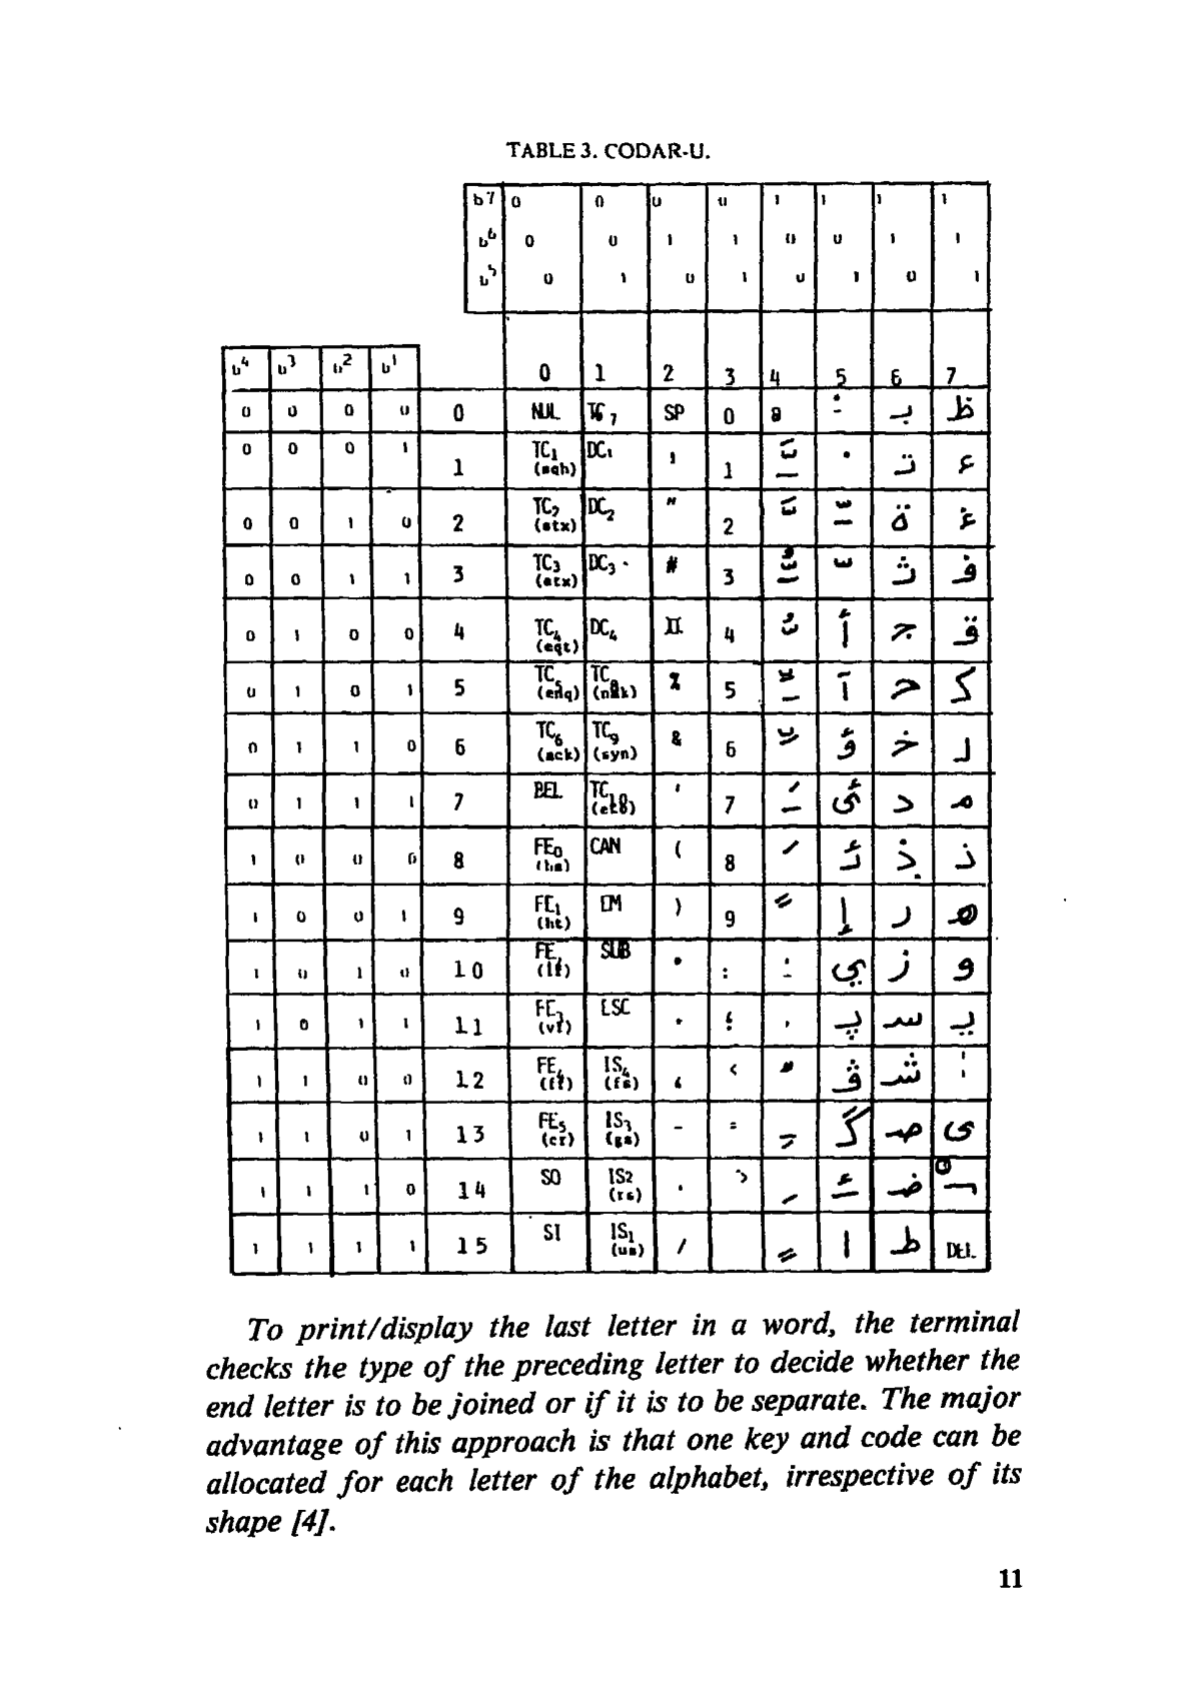 TABLE 3. CODAR-U.
b7 0 0 0 0 1 1 1 1
b6 0 0 1 1 0 0 1 1
b5 0 1 0 1 0 1 0 1
b4 b3 b2 b1 0 1 2 3 4 5 6 7
0 0 0 0 0 NUL TC7 SP 0 ب ظ
0 0 0 1 1 TC1 (soh) DC1 1 ت ع
0 0 1 0 2 TC2 (stx) DC2 " 2 ة غ
0 0 1 1 3 TC3 (etx) DC3 # 3 ث ف
0 1 0 0 4 TC4 (eqt) DC4 ¤ 4 أ ج ق
0 1 0 1 5 TC5 (enq) TC8 (nak) % 5 آ ح ك
0 1 1 0 6 TC6 (ack) TC9 (syn) & 6 ؤ خ ل
0 1 1 1 7 BEL TC10 (etb) ' 7 ئ د م
1 0 0 0 8 FE0 (bs) CAN ( 8 ذ ن
1 0 0 1 9 FE1 (ht) EM ) 9 إ ر ه
1 0 1 0 10 FE2 (lf) SUB : ي ز و
1 0 1 1 11 FE3 (vt) ESC ؛ پ س ي
1 1 0 0 12 FE4 (ff) IS4 (fs) ، < ڤ ش
1 1 0 1 13 FE5 (cr) IS3 (gs) - = گ ص ى
1 1 1 0 14 SO IS2 (rs) . > ئ ض
1 1 1 1 15 SI IS1 (us) / ا ط DEL
To print/display the last letter in a word, the terminal
checks the type of the preceding letter to decide whether the
end letter is to be joined or if it is to be separate. The major
advantage of this approach is that one key and code can be
allocated for each letter of the alphabet, irrespective of its
shape [4].
11